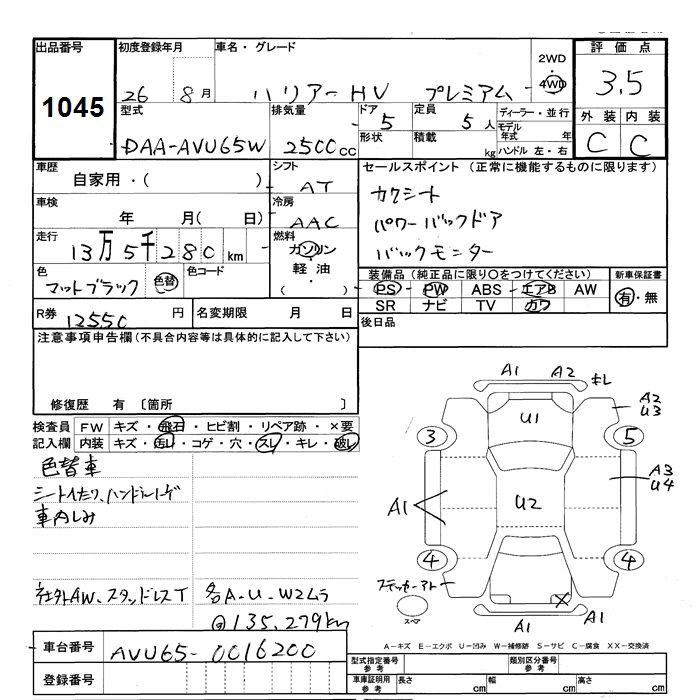 出品番号 1045
初度登録年月 26 8月
車名・グレード ハリアーHV プレミアム
2WD・4WD
評価点 3.5
外装 内装
C C
型式 DAA-AVU65W
排気量 2500cc
ドア 5
形状
定員 5人
積載 kg
ディーラー・並行
モデル年式 年
ハンドル 左・右
車歴 自家用・( )
シフト AT
車検 年 月( 日)
冷房 AAC
走行 13万5千280km
燃料 ガソリン・軽油・( )
色 マットブラック 色替
色コード
R券 12550円
名変期限 月 日
セールスポイント(正常に機能するものに限ります)
カクシート
パワーバックドア
バックモニター
装備品(純正品に限り○をつけてください)
PS PW ABS エアB AW
SR ナビ TV カワ
新車保証書
有・無
後日品
注意事項申告欄(不具合内容等は具体的に記入して下さい)
修復歴 有 〔箇所 〕
検査員記入欄
FW キズ・飛石・ヒビ割・リペア跡・×要
内装 キズ・汚レ・コゲ・穴・スレ・キレ・破レ
色替車
車内しみ
社外AW、スタッドレスT
各A-U-W2ムラ
135,279km
A1 A2 キレ
A2
U3
U1
3 5
A3
U4
U2
A1
4 4
ステッカーアト
スペア
X
A1 A1
A-キズ E-エクボ U-凹み W-補修跡 S-サビ C-腐食 XX-交換済
車台番号 AVU65-0016200
登録番号
型式指定番号 参考
類別区分番号 参考
車庫証明用 参考 長さ cm 幅 cm 高さ cm